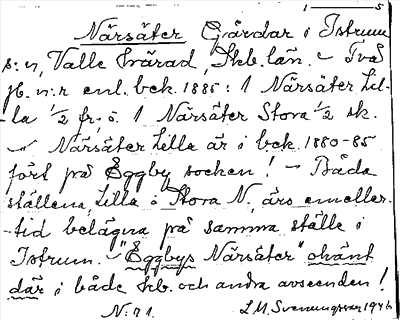 1 — 5
Närsäter Gårdar i Istrum
s:n, Valle härad, Skb. län. – Två
jb. n:r enl. bck. 1885: 1 Närsäter Lil-
la ½ fr, ö. 1 Närsäter Stora ½ sk.
Närsäter Lilla är i bck. 1880-85
fört på Eggby socken! – Båda
ställena, Lilla o Stora N. äro emeller-
tid belägna på samma ställe i
Istrum. – "Eggbys Närsäter" okänt
där i både kb. och andra avseenden!
N:71. L.M. Svenungsson 1946